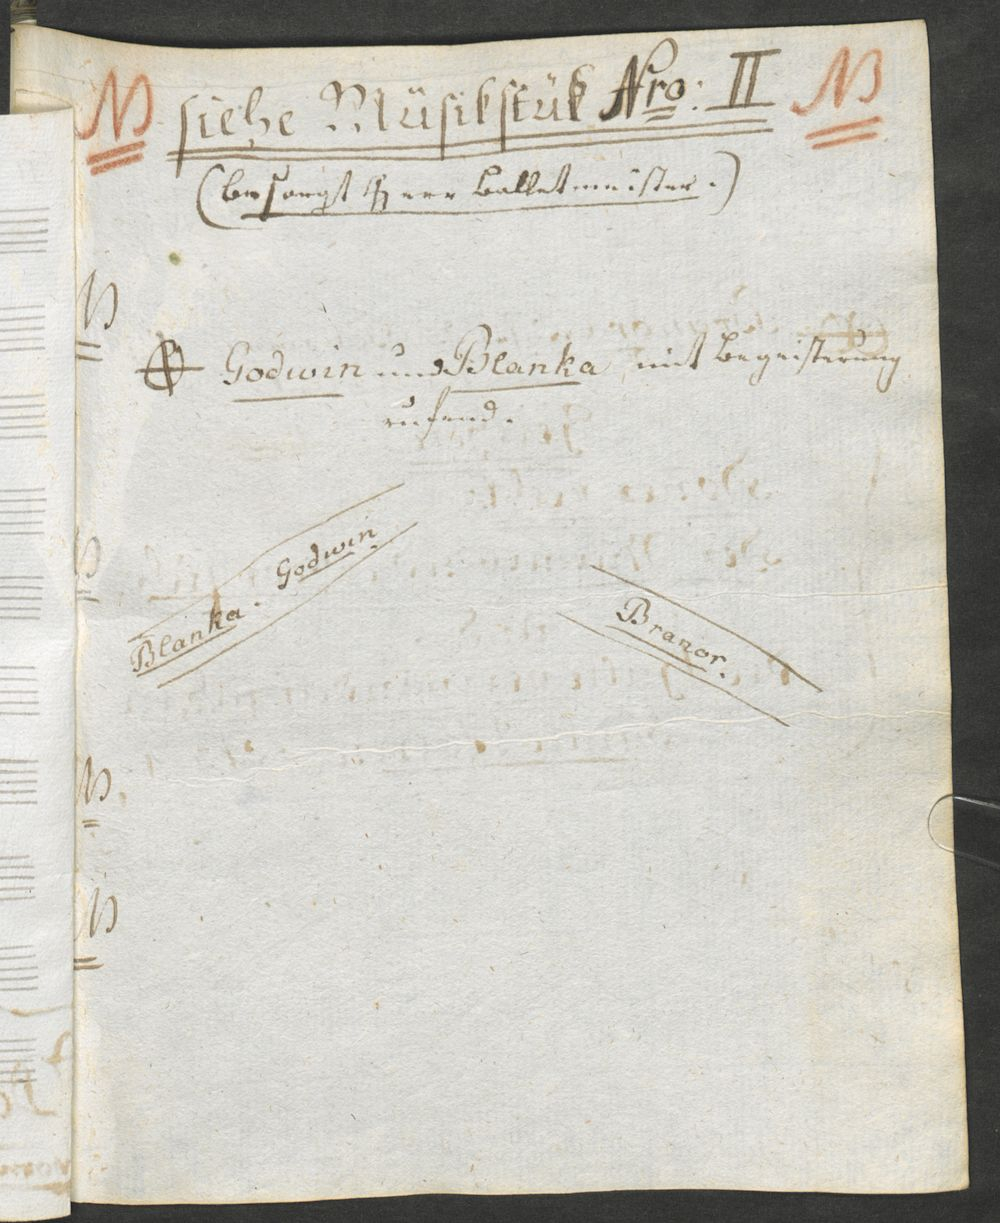 NB siehe Musikstük Nro: II NB
(besorgt Herr Balletmeister.)
NB
Godwin und Blanka mit Begeisterung
rufend.
Blanka. Godwin.
Branor.
NB
NB
NB